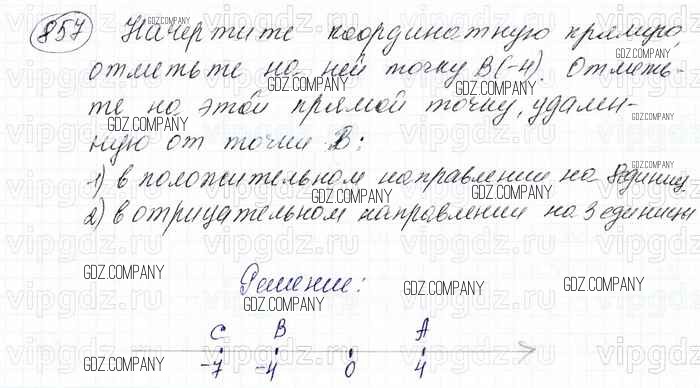 857 Начертите координатную прямую,
отметьте на ней точку B(-4). Отметь-
те на этой прямой точку, удален-
ную от точки B:
1) в положительном направлении на 8 единиц
2) в отрицательном направлении на 3 единицы
Решение:
C B A
-7 -4 0 4